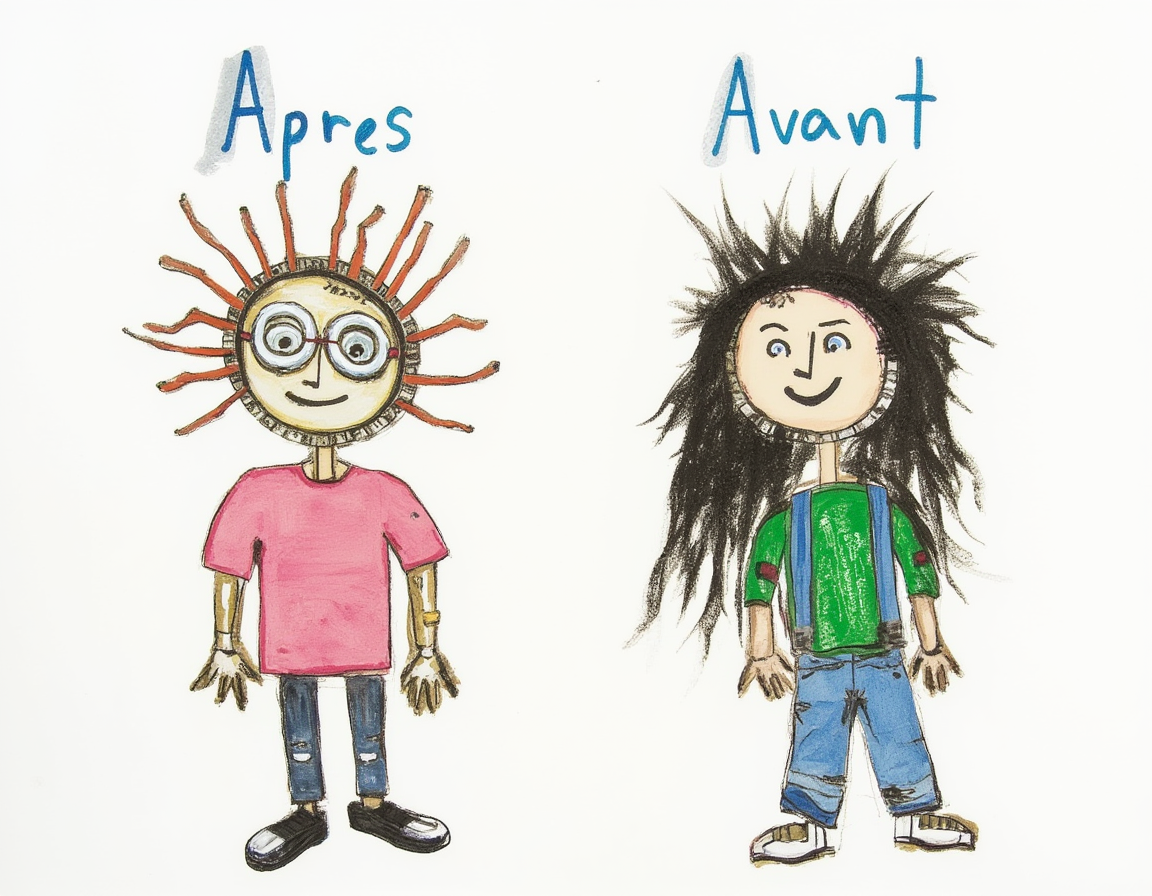 Apres
Avant